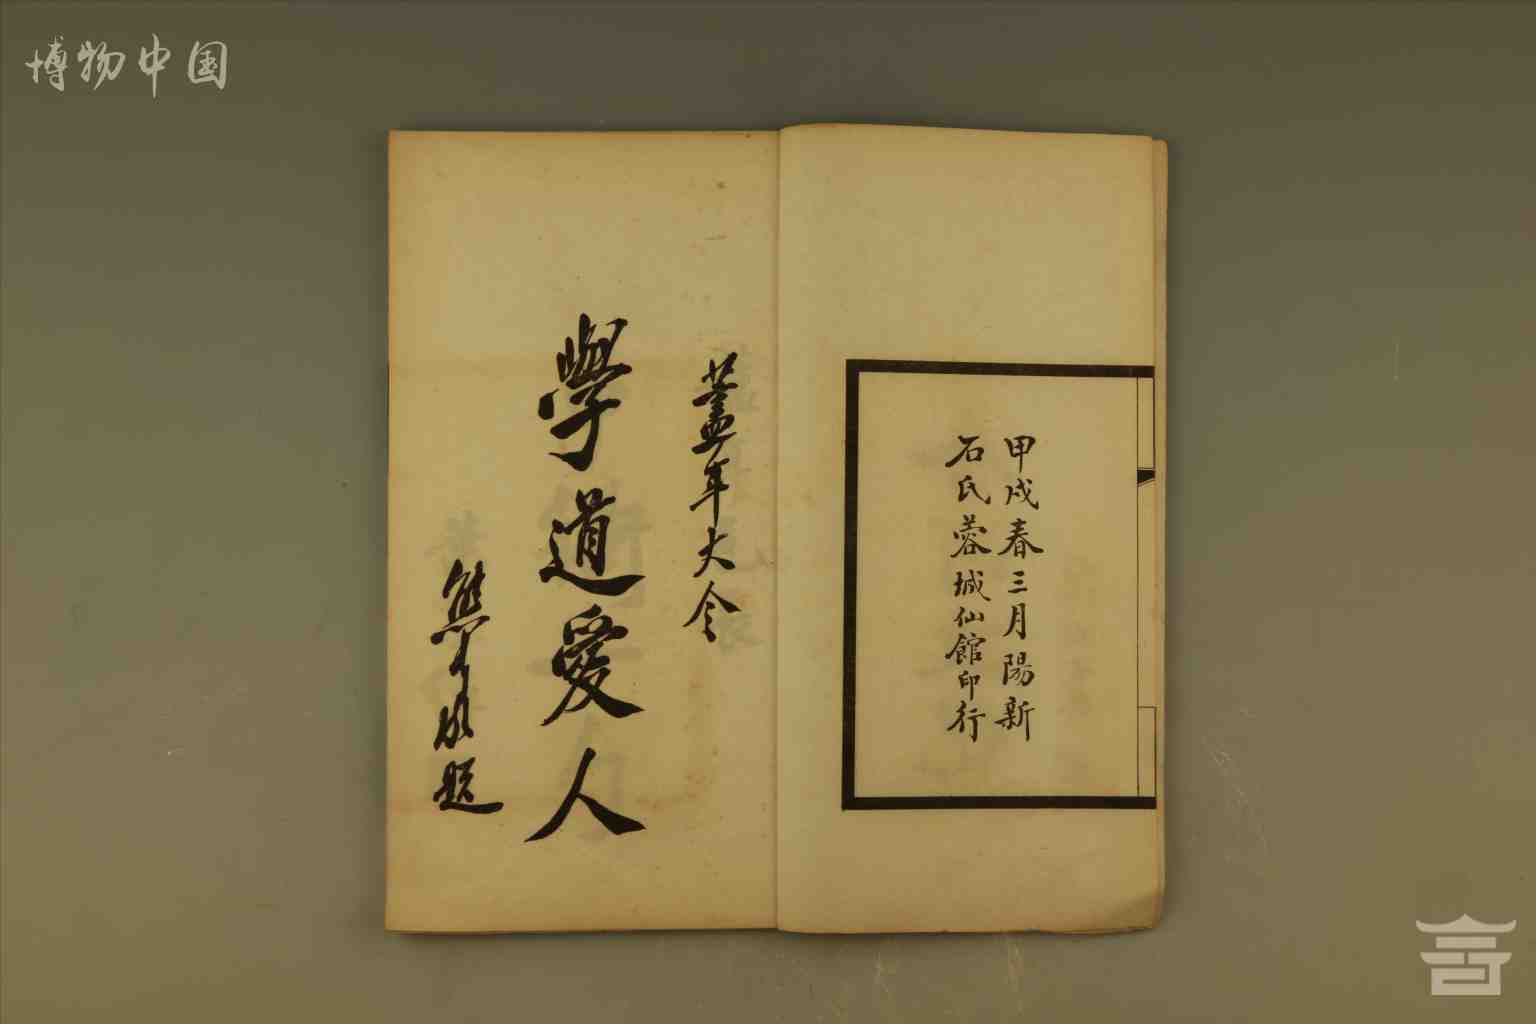 博物中国
甲戌春三月陽新
石氏蓉城仙館印行
藎年大令
學道愛人
熊 題